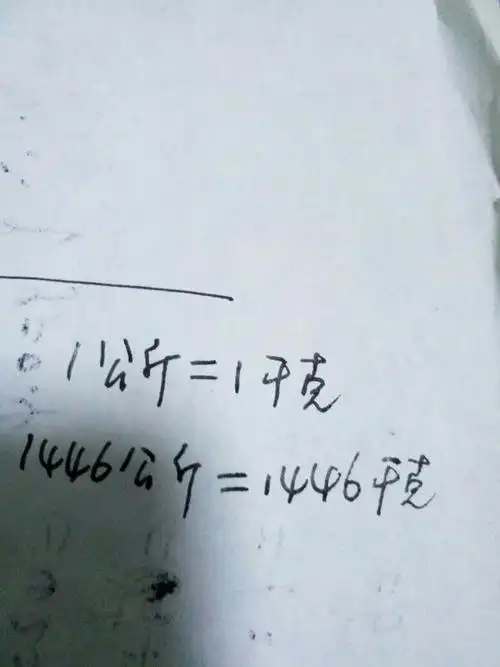 1公斤=1千克
1446公斤=1446千克